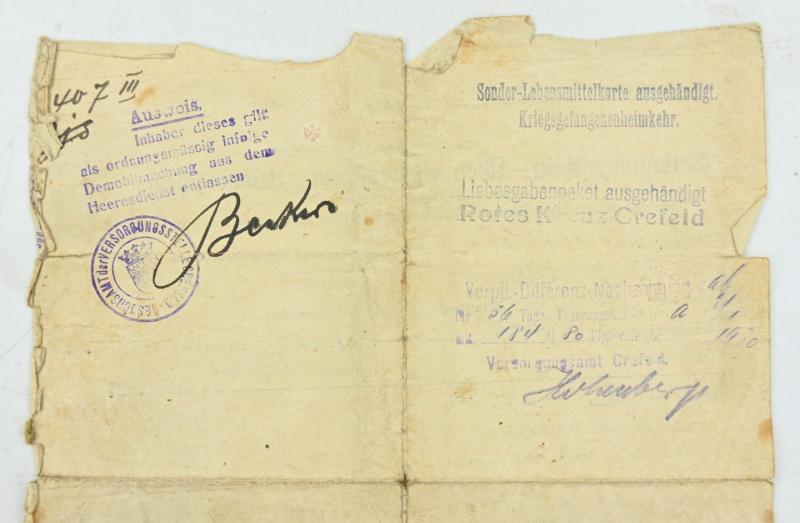 407 III
Ausweis.
Inhaber dieses gilt
als ordnungsmässig infolge
Demobilmachung aus dem
Heeresdienst entlassen
Becker
Sonder-Lebensmittelkarte ausgehändigt.
Kriegsgefangenenheimkehr.
Liebesgabenpaket ausgehändigt
Rotes Kreuz Crefeld
Verpfl.-Differenz-Nach
für 56 Tage, Teuerungs
mit 184 80
Versorgungsamt Crefeld.
Hohenberg